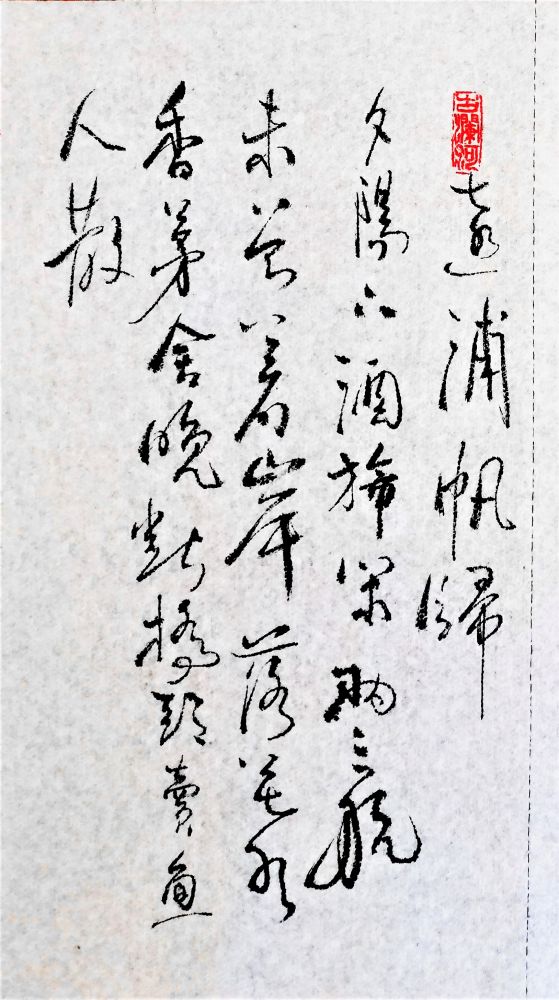 遠浦帆歸
夕陽下酒旆閑兩三航
未曾着岸落花水
香茅舍晚斷橋頭賣魚
人散